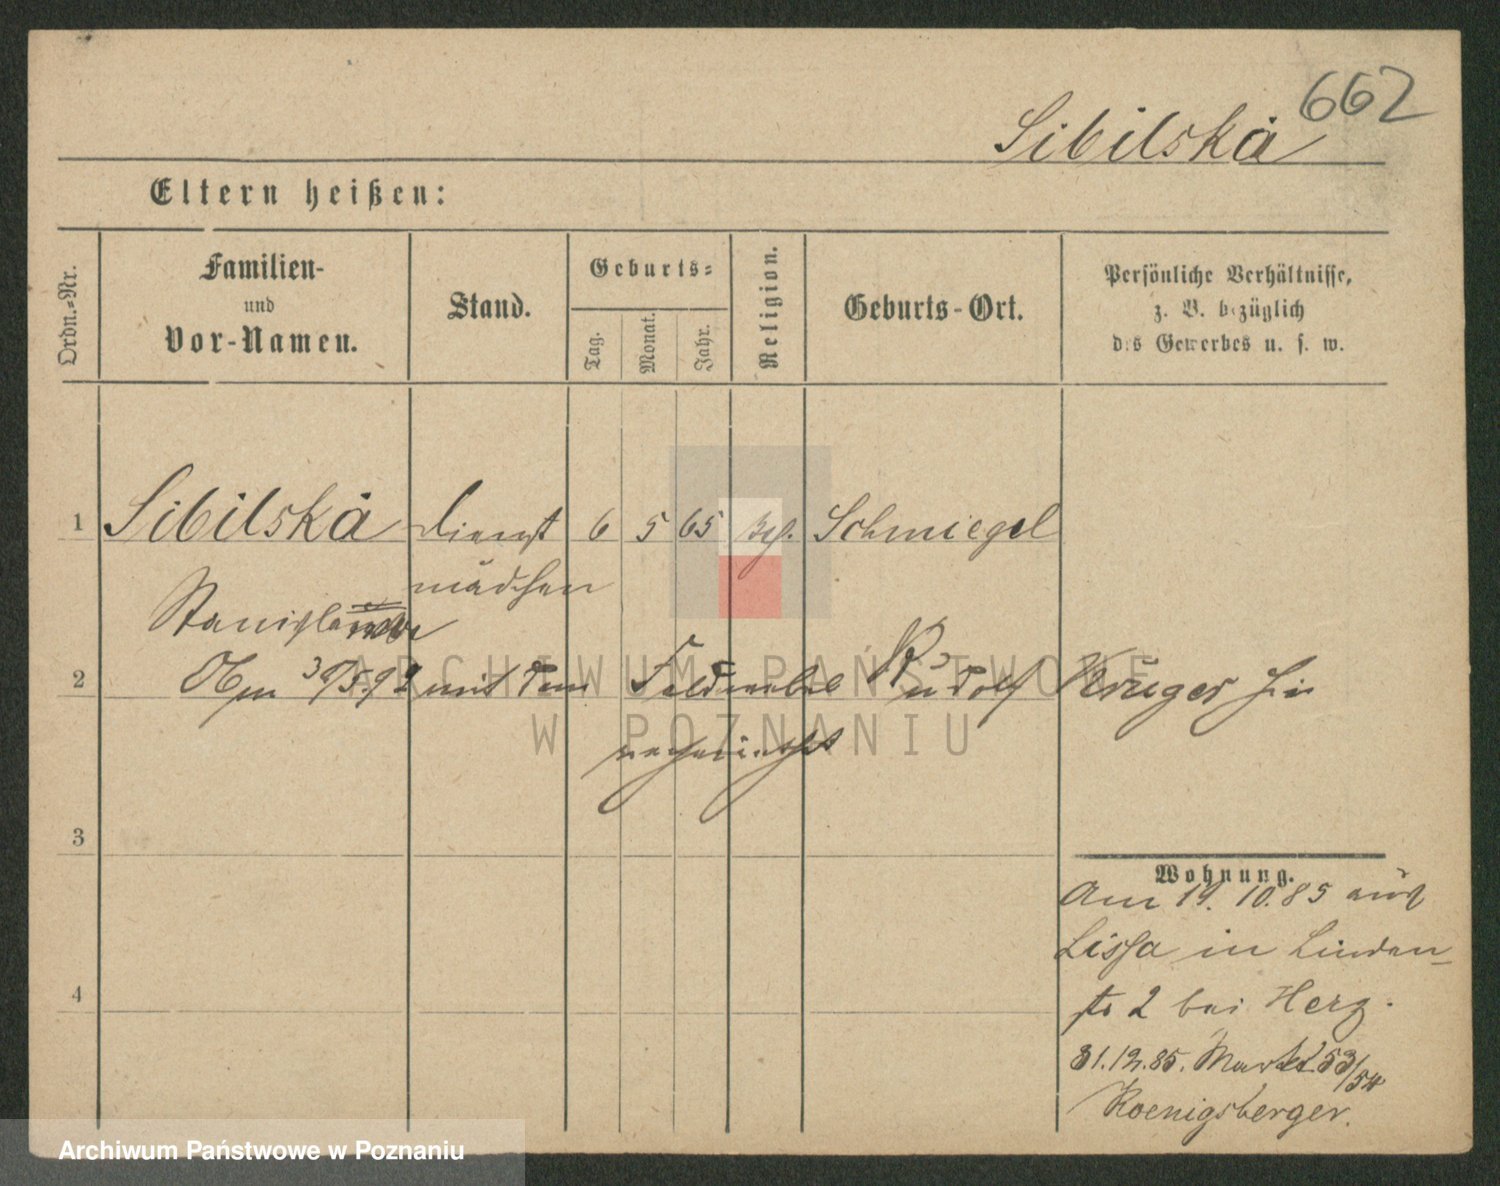 662
Sibilska
Eltern heißen:
Ordn.-Nr.
Familien-
und
Vor-Namen.
Stand.
Geburts-
Tag.
Monat.
Jahr.
Religion.
Geburts-Ort.
Persönliche Verhältnisse,
z. B. bezüglich
des Gewerbes u. s. w.
1 Sibilska Dienst 6 5 65 Schmiegel
mädchen
Stanislawa
2 30/5.92 mit dem Feldwebel Rudolf Krüger hier
verheirathet
3
Wohnung.
Am 19. 10. 85 aus
Lissa in Linden-
4
str 2 bei Herz.
31.12.85. Markt 53/54
Koenigsberger.
ARCHIWUM PAŃSTWOWE
W POZNANIU
Archiwum Państwowe w Poznaniu